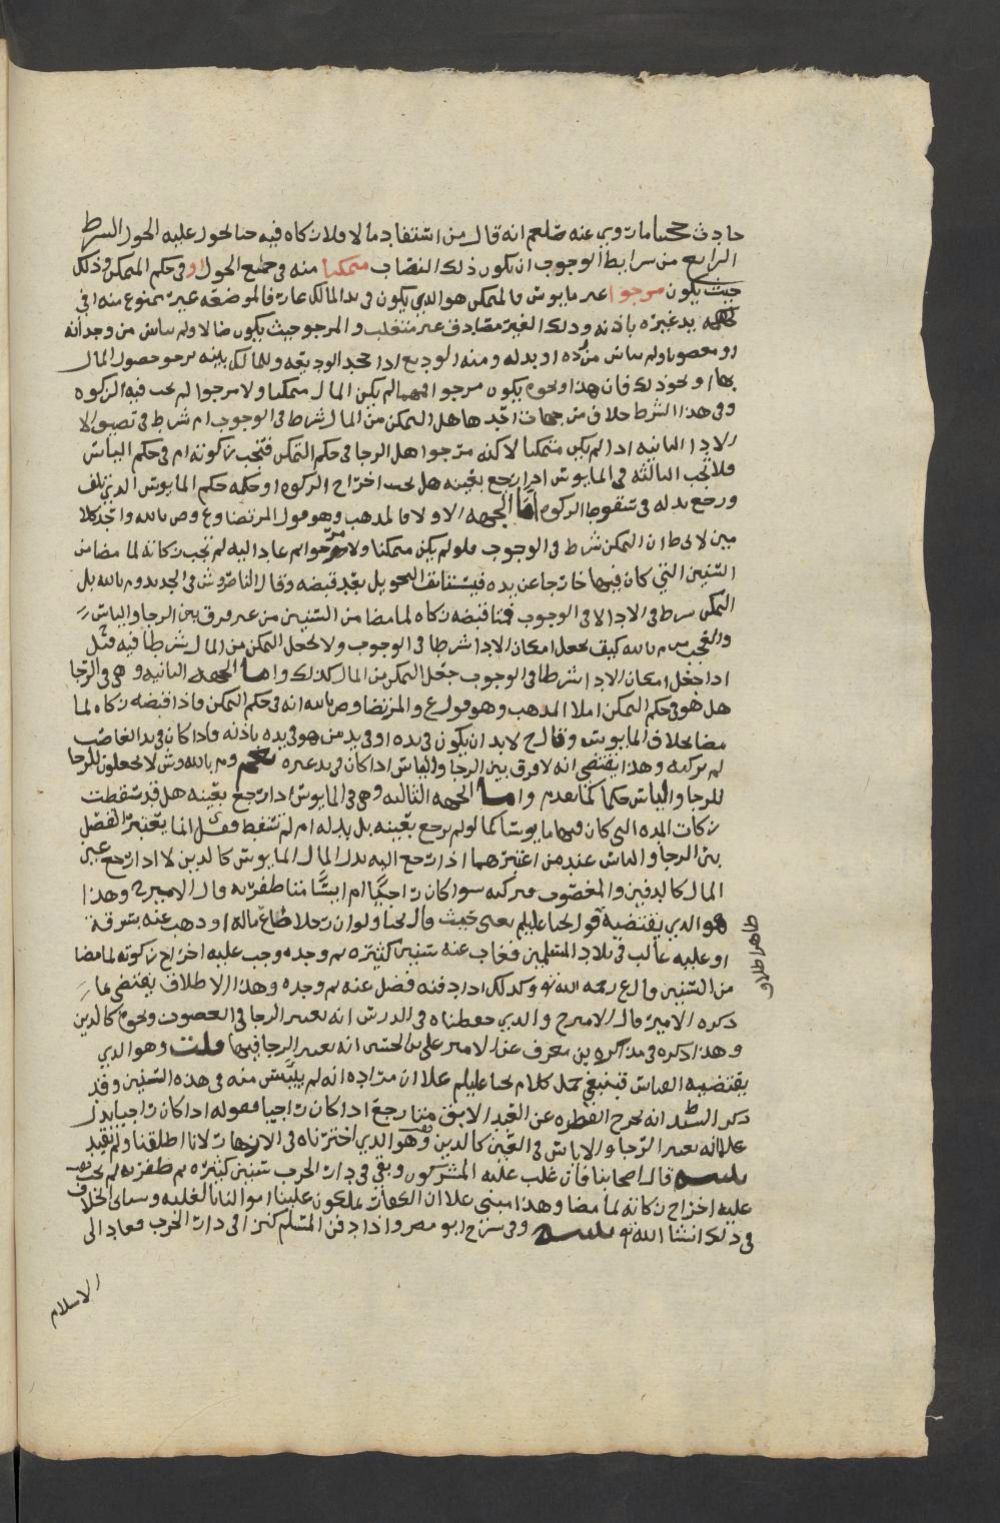 حادث حجتنا ما روي عنه صلعم انه قال من استفاد مالا فلا زكاه فيه حتا يحول عليه الحول الشرط
الرابع من شرايط الوجوب ان يكون ذلك النصاب متمكنا منه في جميع الحول او في حكم المتمكن وذلك
حيث يكون مرجوا غير مايوس فالمتمكن هو الذي يكون في يد المالك عارفا لموضعه غير ممنوع منه او في
يد غيره باذنه وذلك الغير مصادق غير متغلب والمرجو حيث يكون ضالا ولم يياس من وجدانه
او مغصوبا ولم يياس من رده او بدله ومنه الوديع اذا جحد الوديعه وللمالك بينه يرجو حصول المال
بها او نحو ذلك فان هذا ونحوه يكون مرجوا فمهما لم يكن المال متمكنا ولا مرجوا لم تجب فيه الزكوه
وفي هذا الشرط خلاف من جهات احدها هل التمكن من المال شرط في الوجوب ام شرط في تضيق الا
الادا الثانيه اذا لم يكن متمكنا لاكنه مرجوا هل الرجا في حكم التمكن فتجب زكوته ام في حكم الياس
فلا تجب الثالثه في المايوس اذا رجع بعينه هل يجب اخراج الزكوه او حكمه حكم المايوس الذي تلف
ورجع بدله في سقوط الزكوه اما الجهه الاولا فالمذهب وهو قول المرتضا وع وص بالله واحد كلا
مين لاىط ان التمكن شرط في الوجوب فلو لم يكن متمكنا ولا مرجوا ثم عاد اليه لم تجب زكاته لما مضا من
السنين التي كان فيها خارجا عن يده فيستانف التحويل بعد قبضه وقال الناصر وش في الجديد وم بالله بل
التمكن شرط في الادا لا في الوجوب فمتا قبضه زكاه لما مضا من السنين من غير فرق بين الرجا والياس
والعجب من م بالله كيف يجعل امكان الادا شرطا في الوجوب ولا يجعل التمكن من المال شرطا فيه فمثل
اذا جعل امكان الادا شرطا في الوجوب جعل التمكن من المال كذلك واما الجهه الثانيه وهي في الرجا
هل هو في حكم التمكن ام لا المذهب وهو قول ع والمرتضا وص بالله انه في حكم التمكن فاذا قبضه زكاه لما
مضا بخلاف المايوس وقال ح لابد ان يكون في يده او في يد من هو في يده باذنه فاذا كان في يد الغاصب
لم يزكيه وهذا يقتضي انه لا فرق بين الرجا والياس اذا كان في يد غيره نعم وم بالله وش لا يجعلون للرجا
للرجا والياس حكما كما تقدم واما الجهه الثالثه وهي في المايوس اذا رجع بعينه هل قد سقطت
زكات المده التي كان فيها مايوسا كما لو لم يرجع بعينه بل بدله ام لم تسقط وقيل انما يعتبر الفصل
بين الرجا والياس عند من اعتبرهما اذا رجع اليه بدل المال المايوس كالدين لا اذا رجع عين
المال كالدفين والمغصوب فيزكيه سوا كان راجيا ام ايسا متا ظفر به قال الامير ح وهذا
هو الذي يقتضيه قول يحيا عليلم يعني حيث قال يحيا ولو ان رجلا ضاع ماله او ذهب عنه بسرقة
او غلبه غالب في بلاد المسلمين فغاب عنه سنين كثيره ثم وجده وجب عليه اخراج زكوته لما مضا
من السنين قال ع رحمه الله وكذلك اذا دفنه فضل عنه ثم وجده وهذا الاطلاق يقتضي ما
ذكره الامير قال الامير ح والذي حفظناه في الدرس انه يعتبر الرجا في المغصوب ونحوه كالدين
وهذا ذكره في مذاكره بن معرف عن الامير علي بن الحسين انه يعتبر الرجا فيها قلت وهو الذي
يقتضيه القياس فينبغي حمل كلام يحيا عليلم علا ان مراده انه لم ييس منه في هذه السنين وقد
ذكر السيد ط انه يخرج الفطره عن العبد الابق متا رجع اذا كان راجيا فقوله اذا كان راجيا يدل
علا انه يعتبر الرجا والاياس في العين كالدين وهو الذي اخترناه في الازهار لانا اطلقنا ولم نقيد
تنبيه قال اصحابنا فان غلب عليه المشركون وبقي في دار الحرب سنين كثيره ثم ظفر به لم تجب
عليه اخراج زكاته لما مضا وهذا مبني علا ان الكفار يملكون علينا اموالنا بالغلبه وسياتي الخلاف
في ذلك انشا الله تع تنبيه وفي شرح ابو مضر واذا دفن المسلم كنزا في دار الحرب فعاد الى
الاسلام
ظاهر اطلاق